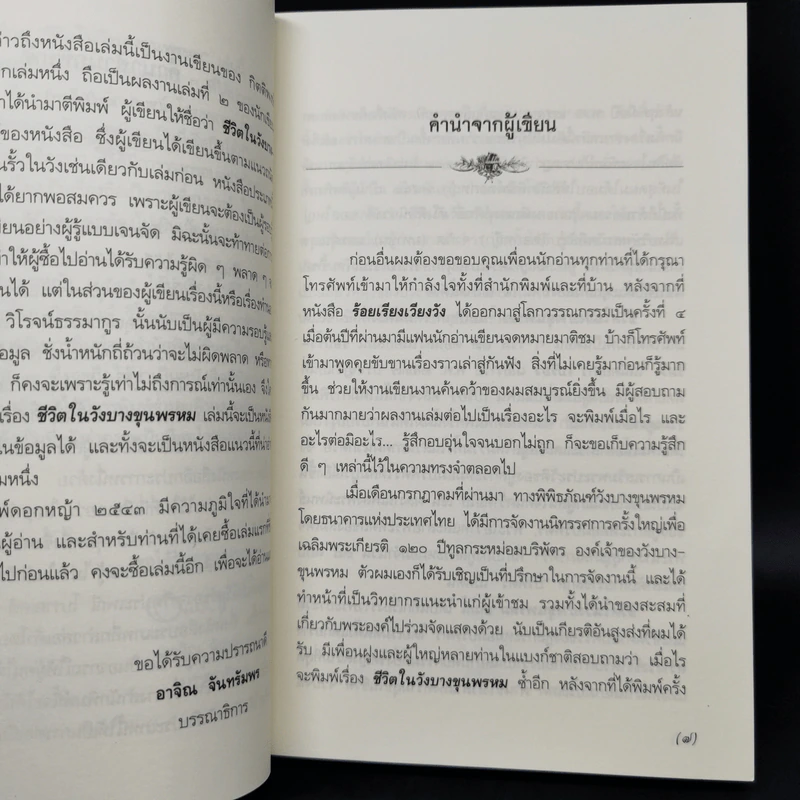 ถึงหนังสือเล่มนี้เป็นงานเขียนของ
เล่มหนึ่ง ถือเป็นผลงานเล่มที่ ๒ ของ
ได้นำมาตีพิมพ์ ผู้เขียนให้ชื่อว่า ชีวิตในวัง
ของหนังสือ ซึ่งผู้เขียนได้เขียนขึ้นตาม
รั้วในวังเช่นเดียวกับเล่มก่อน หนังสือ
ได้ยากพอสมควร เพราะผู้เขียนจะต้องเป็น
อย่างผู้รู้แบบเจนจัด มิฉะนั้นจะท้าทาย
ให้ผู้ซื้อไปอ่านได้รับความรู้ผิด ๆ พลาด ๆ
ได้ แต่ในส่วนของผู้เขียนเรื่องนี้หรือเรื่อง
วิโรจน์ธรรมากูร นั้นนับเป็นผู้มีความรอบรู้
ชั่งน้ำหนักถี่ถ้วนว่าจะไม่ผิดพลาด
ก็คงจะเพราะรู้เท่าไม่ถึงการณ์เท่านั้นเอง
เรื่อง ชีวิตในวังบางขุนพรหม เล่มนี้จะเป็น
ข้อมูลได้ และทั้งจะเป็นหนังสือแนวนี้ที่
หนึ่ง
ดอกหญ้า ๒๕๔๓ มีความภูมิใจที่ได้
ผู้อ่าน และสำหรับท่านที่ได้เคยซื้อเล่มแรก
ไปก่อนแล้ว คงจะซื้อเล่มนี้อีก เพื่อจะได้
ขอได้รับความปรารถนาดี
อาจิณ จันทรัมพร
บรรณาธิการ
คำนำจากผู้เขียน
ก่อนอื่นผมต้องขอขอบคุณเพื่อนนักอ่านทุกท่านที่ได้กรุณา
โทรศัพท์เข้ามาให้กำลังใจทั้งที่สำนักพิมพ์และที่บ้าน หลังจากที่
หนังสือ ร้อยเรียงเวียงวัง ได้ออกมาสู่โลกวรรณกรรมเป็นครั้งที่ ๔
เมื่อต้นปีที่ผ่านมามีแฟนนักอ่านเขียนจดหมายมาติชม บ้างก็โทรศัพท์
เข้ามาพูดคุยขับขานเรื่องราวเล่าสู่กันฟัง สิ่งที่ไม่เคยรู้มาก่อนก็รู้มาก
ขึ้น ช่วยให้งานเขียนงานค้นคว้าของผมสมบูรณ์ยิ่งขึ้น มีผู้สอบถาม
กันมากมายว่าผลงานเล่มต่อไปเป็นเรื่องอะไร จะพิมพ์เมื่อไร และ
อะไรต่อมิอะไร... รู้สึกอบอุ่นใจจนบอกไม่ถูก ก็จะขอเก็บความรู้สึก
ดี ๆ เหล่านี้ไว้ในความทรงจำตลอดไป
เมื่อเดือนกรกฎาคมที่ผ่านมา ทางพิพิธภัณฑ์วังบางขุนพรหม
โดยธนาคารแห่งประเทศไทย ได้มีการจัดงานนิทรรศการครั้งใหญ่เพื่อ
เฉลิมพระเกียรติ ๑๒๐ ปีทูลกระหม่อมบริพัตร องค์เจ้าของวังบาง-
ขุนพรหม ตัวผมเองก็ได้รับเชิญเป็นที่ปรึกษาในการจัดงานนี้ และได้
ทำหน้าที่เป็นวิทยากรแนะนำแก่ผู้เข้าชม รวมทั้งได้นำของสะสมที่
เกี่ยวกับพระองค์ไปร่วมจัดแสดงด้วย นับเป็นเกียรติอันสูงส่งที่ผมได้
รับ มีเพื่อนฝูงและผู้ใหญ่หลายท่านในแบงก์ชาติสอบถามว่า เมื่อไร
จะพิมพ์เรื่อง ชีวิตในวังบางขุนพรหม ซ้ำอีก หลังจากที่ได้พิมพ์ครั้ง
(๗)